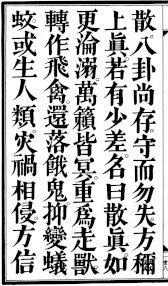 散。八卦尚存。守而勿失。方稱
上眞。若有少差。名曰散眞。如
更淪溺。萬籟皆冥。重爲走獸。
轉作飛禽。還落餓鬼。抑變蟻
蛟。或生人類。灾禍相侵。方信